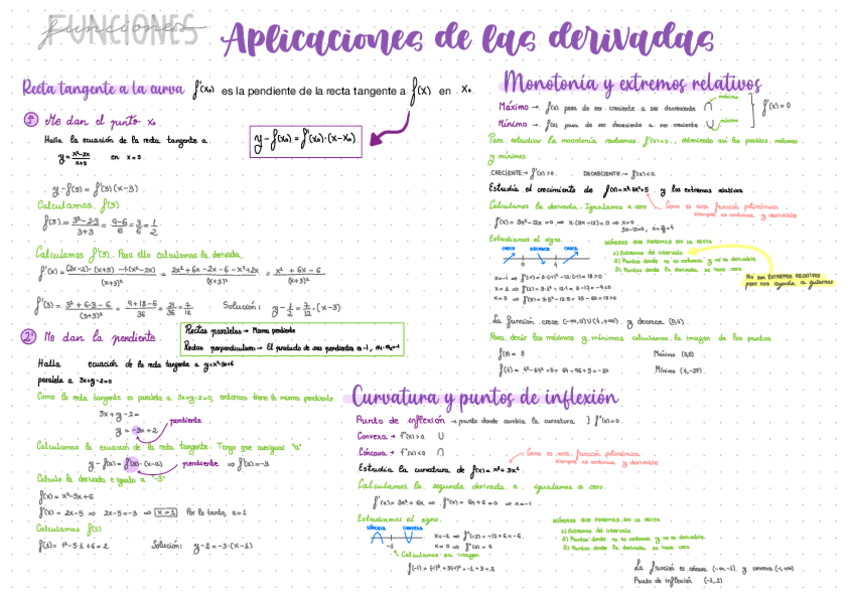 FUNCIONES
funciones
Aplicaciones de las derivadas
Recta tangente a la curva f'(x₀) es la pendiente de la recta tangente a f(x) en x₀
1º Me dan el punto x₀
Halla la ecuación de la recta tangente a
y = (x²-2x)/(x+3) en x=3
y-f(x₀) = f'(x₀)·(x-x₀)
y-f(3) = f'(3)(x-3)
Calculamos f(3)
f(3) = (3²-2·3)/(3+3) = (9-6)/6 = 3/6 = 1/2
Calculamos f'(3). Para ello calculamos la derivada.
f'(x) = ((2x-2)·(x+3) -1·(x²-2x))/(x+3)² = (2x²+6x-2x-6-x²+2x)/(x+3)² = (x²+6x-6)/(x+3)²
f'(3) = (3²+6·3-6)/(3+3)² = (9+18-6)/36 = 21/36 = 7/12 Solución: y-1/2 = 7/12·(x-3)
2º Me dan la pendiente
Rectas paralelas → Misma pendiente
Rectas perpendiculares → El producto de sus pendientes es -1, m₁·m₂=-1
Halla ecuación de la recta tangente a y=x²-5x+6
paralela a 3x+y-2=0
Como la recta tangente es paralela a 3x+y-2=0, entonces tiene la misma pendiente
3x+y-2=
y = -3x+2
pendiente
Calculamos la ecuación de la recta tangente. Tengo que averiguar "a"
y-f(a) = f'(a)·(x-a) pendiente ⇒ f'(x)=-3
Calculo la derivada e igualo a "-3"
f(x) = x²-5x+6
f'(x) = 2x-5 ⇒ 2x-5=-3 ⇒ x=1 Por lo tanto, a=1
Calculamos f(1)
f(1) = 1²-5·1+6=2 Solución: y-2=-3·(x-1)
Monotonía y extremos relativos
Máximo → f(x) pasa de ser creciente a ser decreciente ∩ máximo
Mínimo → f(x) pasa de ser decreciente a ser creciente ∪ mínimo
f'(x)=0
Para estudiar la monotonía realizamos f'(x)=0, obteniendo así los posibles máximos
y mínimos.
CRECIENTE → f'(x)>0 DECRECIENTE → f'(x)<0
Estudia el crecimiento de f(x)=x³-6x²+5 y los extremos relativos
Calculamos la derivada. Igualamos a cero
Como es una función polinómica
siempre es continua y derivable
f'(x) = 3x²-12x=0 ⇒ x·(3x-12)=0 ⇒ x=0
3x-12=0, x=4
Estudiamos el signo
CRECE DECRECE CRECE
0 4
NÚMEROS QUE PONEMOS EN LA RECTA
1) Extremos del intervalo
2) Puntos donde no es continua y no es derivable
3) Puntos donde la derivada se hace cero
No son EXTREMOS RELATIVOS
pero nos ayuda a guiarnos
La función crece (-∞,0)∪(4,+∞) y decrece (0,4)
Para decir los máximos y mínimos calculamos la imagen de los puntos
f(0) = 5 Máximo (0,5)
f(4) = 4³-6·4²+5 = 64-96+5=-27 Mínimo (4,-27)
Curvatura y puntos de inflexión
Punto de inflexión → punto donde cambia la curvatura } f''(x)=0
Convexa → f''(x)>0 ∪
Cóncava → f''(x)<0 ∩
Estudia la curvatura de f(x)=x³+3x²
Como es una función polinómica
siempre es continua y derivable
Calculamos la segunda derivada e igualamos a cero
f'(x)=3x²+6x ⇒ f''(x)=6x+6=0 ⇒ x=-1
Estudiamos el signo
CÓNCAVA CONVEXA
-1
x=-2 ⇒ f''(-2)=-12+6=-6
x=0 ⇒ f''(0)=6
Calculamos su imagen
f(-1)=(-1)³+3(-1)²=-1+3=2
NÚMEROS QUE PONEMOS EN LA RECTA
1) Extremos del intervalo
2) Puntos donde no es continua y no es derivable
3) Puntos donde la derivada se hace cero
La función es cóncava (-∞,-1) y convexa (-1,+∞)
Punto de inflexión (-1,2)